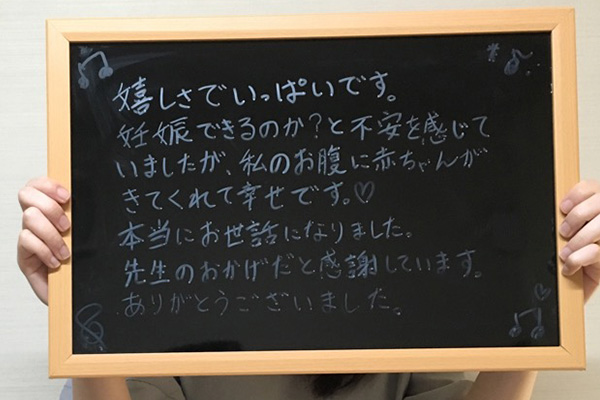 嬉しさでいっぱいです。
妊娠できるのか？と不安を感じて
いましたが、私のお腹に赤ちゃんが
きてくれて幸せです。♡
本当にお世話になりました。
先生のおかげだと感謝しています。
ありがとうございました。